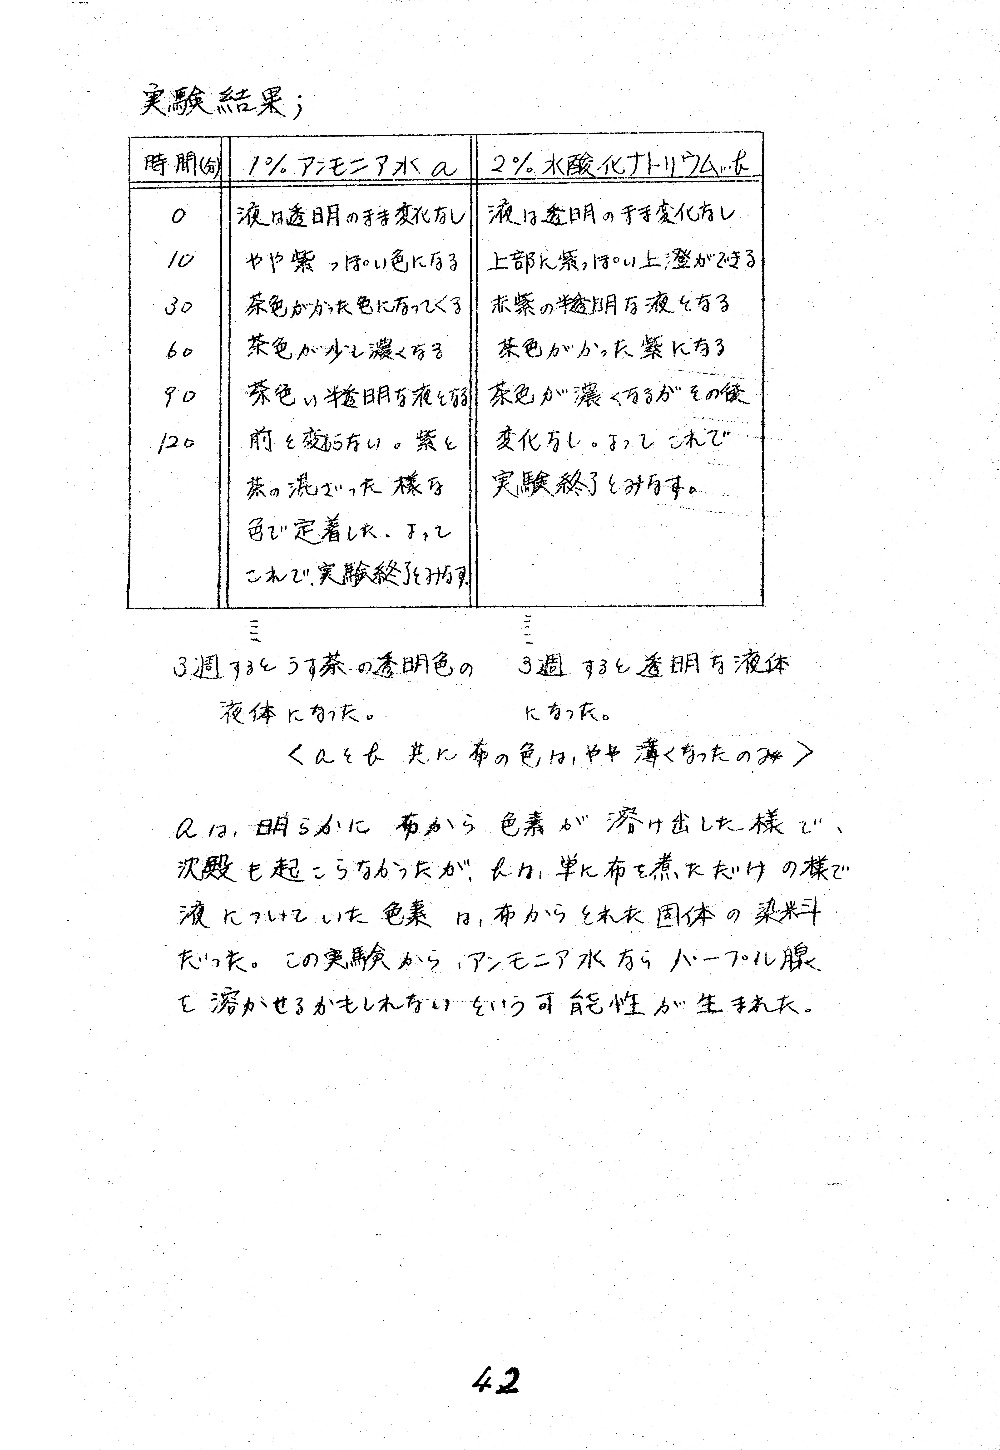 実験結果;
時間(分) 1% アンモニア水 a 2% 水酸化ナトリウム‥b
0 液は透明のまま変化なし 液は透明のまま変化なし
10 やや紫っぽい色になる 上部に紫っぽい上澄ができる
30 茶色がかった色になってくる 赤紫の半透明な液となる
60 茶色が少し濃くなる 茶色がかった紫になる
90 茶色い半透明な液となる 茶色が濃くなるがその後
120 前と変らない。紫と 変化なし。よってこれで
茶の混ざった様な 実験終了とみなす。
色で定着した。よって
これで、実験終了とみなす
3週するとうす茶の透明色の 3週すると透明な液体
液体になった。 になった。
<aとb 共に布の色は、やや薄くなったのみ>
aは、明らかに布から色素が溶け出した様で、
沈殿も起こらなかったが、bは、単に布を煮ただけの様で
液についていた色素は、布からとれた固体の染料
だった。この実験から、アンモニア水ならパープル腺
を溶かせるかもしれないという可能性が生まれた。
42